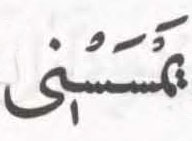 يَمْسَسْنِى